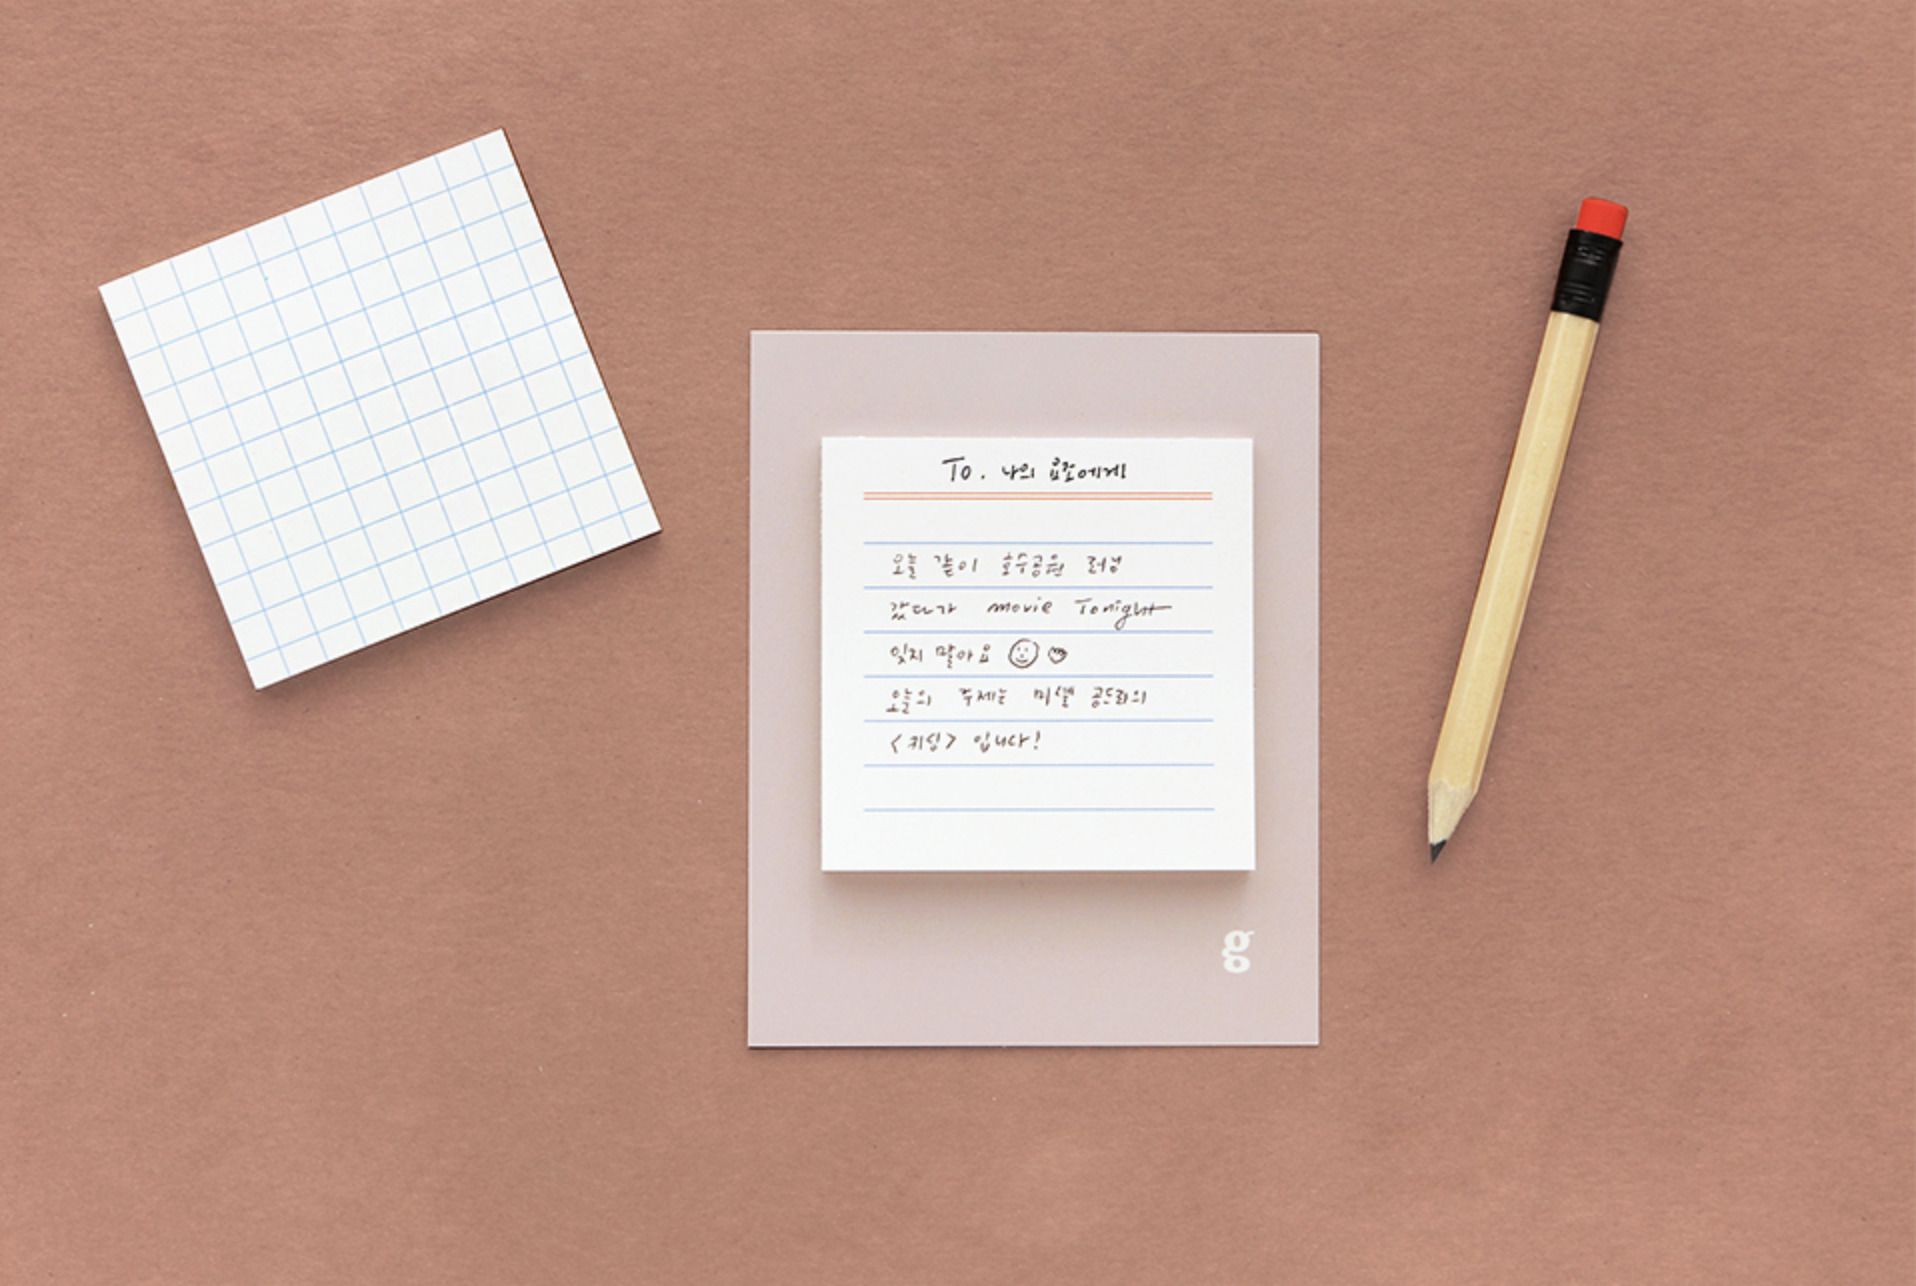 To. 나의 요정에게!
오늘 같이 호수공원 러닝
갔다가 movie Tonight
잊지 말아요
오늘의 주제는 미셸 공드리의
<키싱> 입니다!
g